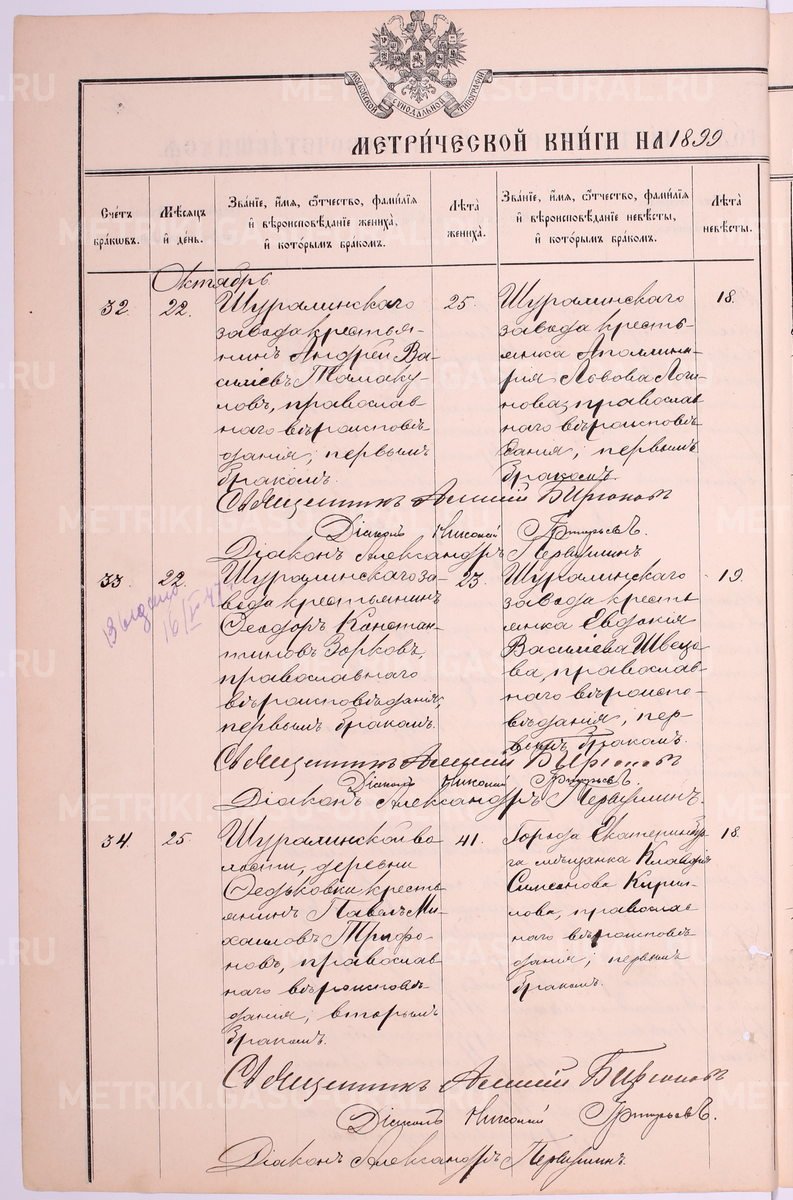 МОСКОВСКОЙ СѴНОДАЛЬНОЙ ТИПОГРАФІИ
МЕТРИ́ЧЕСКОЙ КНИ́ГИ НА 1899
Счетъ бракωвъ.
Мѣсяцъ и́ день.
Зва́нїе, и́мя, Ѻтчество, фами́лїя и́ вѣроисповѣ́данїе жениха̀, и́ кото́рымъ бра́комъ.
Лѣта̀ жениха̀.
Зва́нїе, и́мя, Ѻтчество, фами́лїя и́ вѣроисповѣ́данїе невѣ́сты, и́ кото́рымъ бра́комъ.
Лѣта̀ невѣ́сты.
Октябрь
32.
22.
Шуралинскаго
завода крестья-
нинъ Андрей Ва-
сильевъ Томаку-
ловъ, православ
наго вѣроисповѣ-
данія; первымъ
бракомъ.
25.
Шуралинскаго
завода кресть-
янка Аполлина-
рія Львова Логи
нова, православ
наго вѣроисповѣ
данія; первымъ
бракомъ.
18.
Священникъ Алексій Бирюковъ
Діаконъ Никоній Григорьевъ.
Діаконъ Александръ Первушинъ
33
22.
Выдано
16/V 47
Шуралинскаго за-
вода крестьянинъ
Ѳеодоръ Констан-
тиновъ Зорковъ,
православнаго
вѣроисповѣданія,
первымъ бракомъ.
23.
Шуралинскаго
завода кресть
янка Евдокія
Васильева Швецо
ва, православ-
наго вѣроиспо-
вѣданія; пер-
вымъ бракомъ.
19.
Священникъ Алексій Бирюковъ
Діаконъ Никоній Григорьевъ.
Діаконъ Александръ Первушинъ.
34.
25.
Шуралинской во
лости, деревни
Ѳедьковки кресть
янинъ Павелъ Ми-
хаиловъ Трифо-
новъ, православ
наго вѣроисповѣ
данія; вторымъ
бракомъ.
41.
Города Екатеринбур
га мѣщанка Клавдія
Симеонова Кирил-
лова, православ
наго вѣроисповѣ
данія; первымъ
бракомъ.
18.
Священникъ Алексій Бирюковъ
Діаконъ Никоній Григорьевъ.
Діаконъ Александръ Первушинъ.